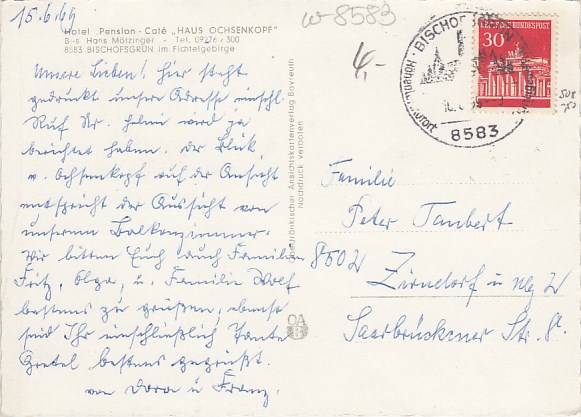 15.6.69
w-8583
Hotel Pension - Café „HAUS OCHSENKOPF"
Bes. Hans Mätzinger - Tel. 09276/300
8583 BISCHOFSGRÜN im Fichtelgebirge
4,-
BISCHOFSGRÜN
Höhenluftkurort
8583
DEUTSCHE BUNDESPOST
30
Unsere Lieben! Hier steht
gedruckt unsere Adresse einschl.
Ruf Nr. Helmi wird ja
berichtet haben. Der Blick
z. Ochsenkopf auf der Ansicht
entspricht der Aussicht von
unserem Balkonzimmer.
Wir bitten Euch auch Familien
Fritz, Olga, u. Familie Wolf
bestens zu grüßen, ebenso
seid Ihr einschließlich Tante
Gretel bestens gegrüßt.
von Dora u Franz.
Oberfränkischer Ansichtskartenverlag Bayreuth
Nachdruck verboten
OA
B
Familie
Peter Taubert
8502 Zirndorf ü Nbg 2
Saarbrückener Str. 8.